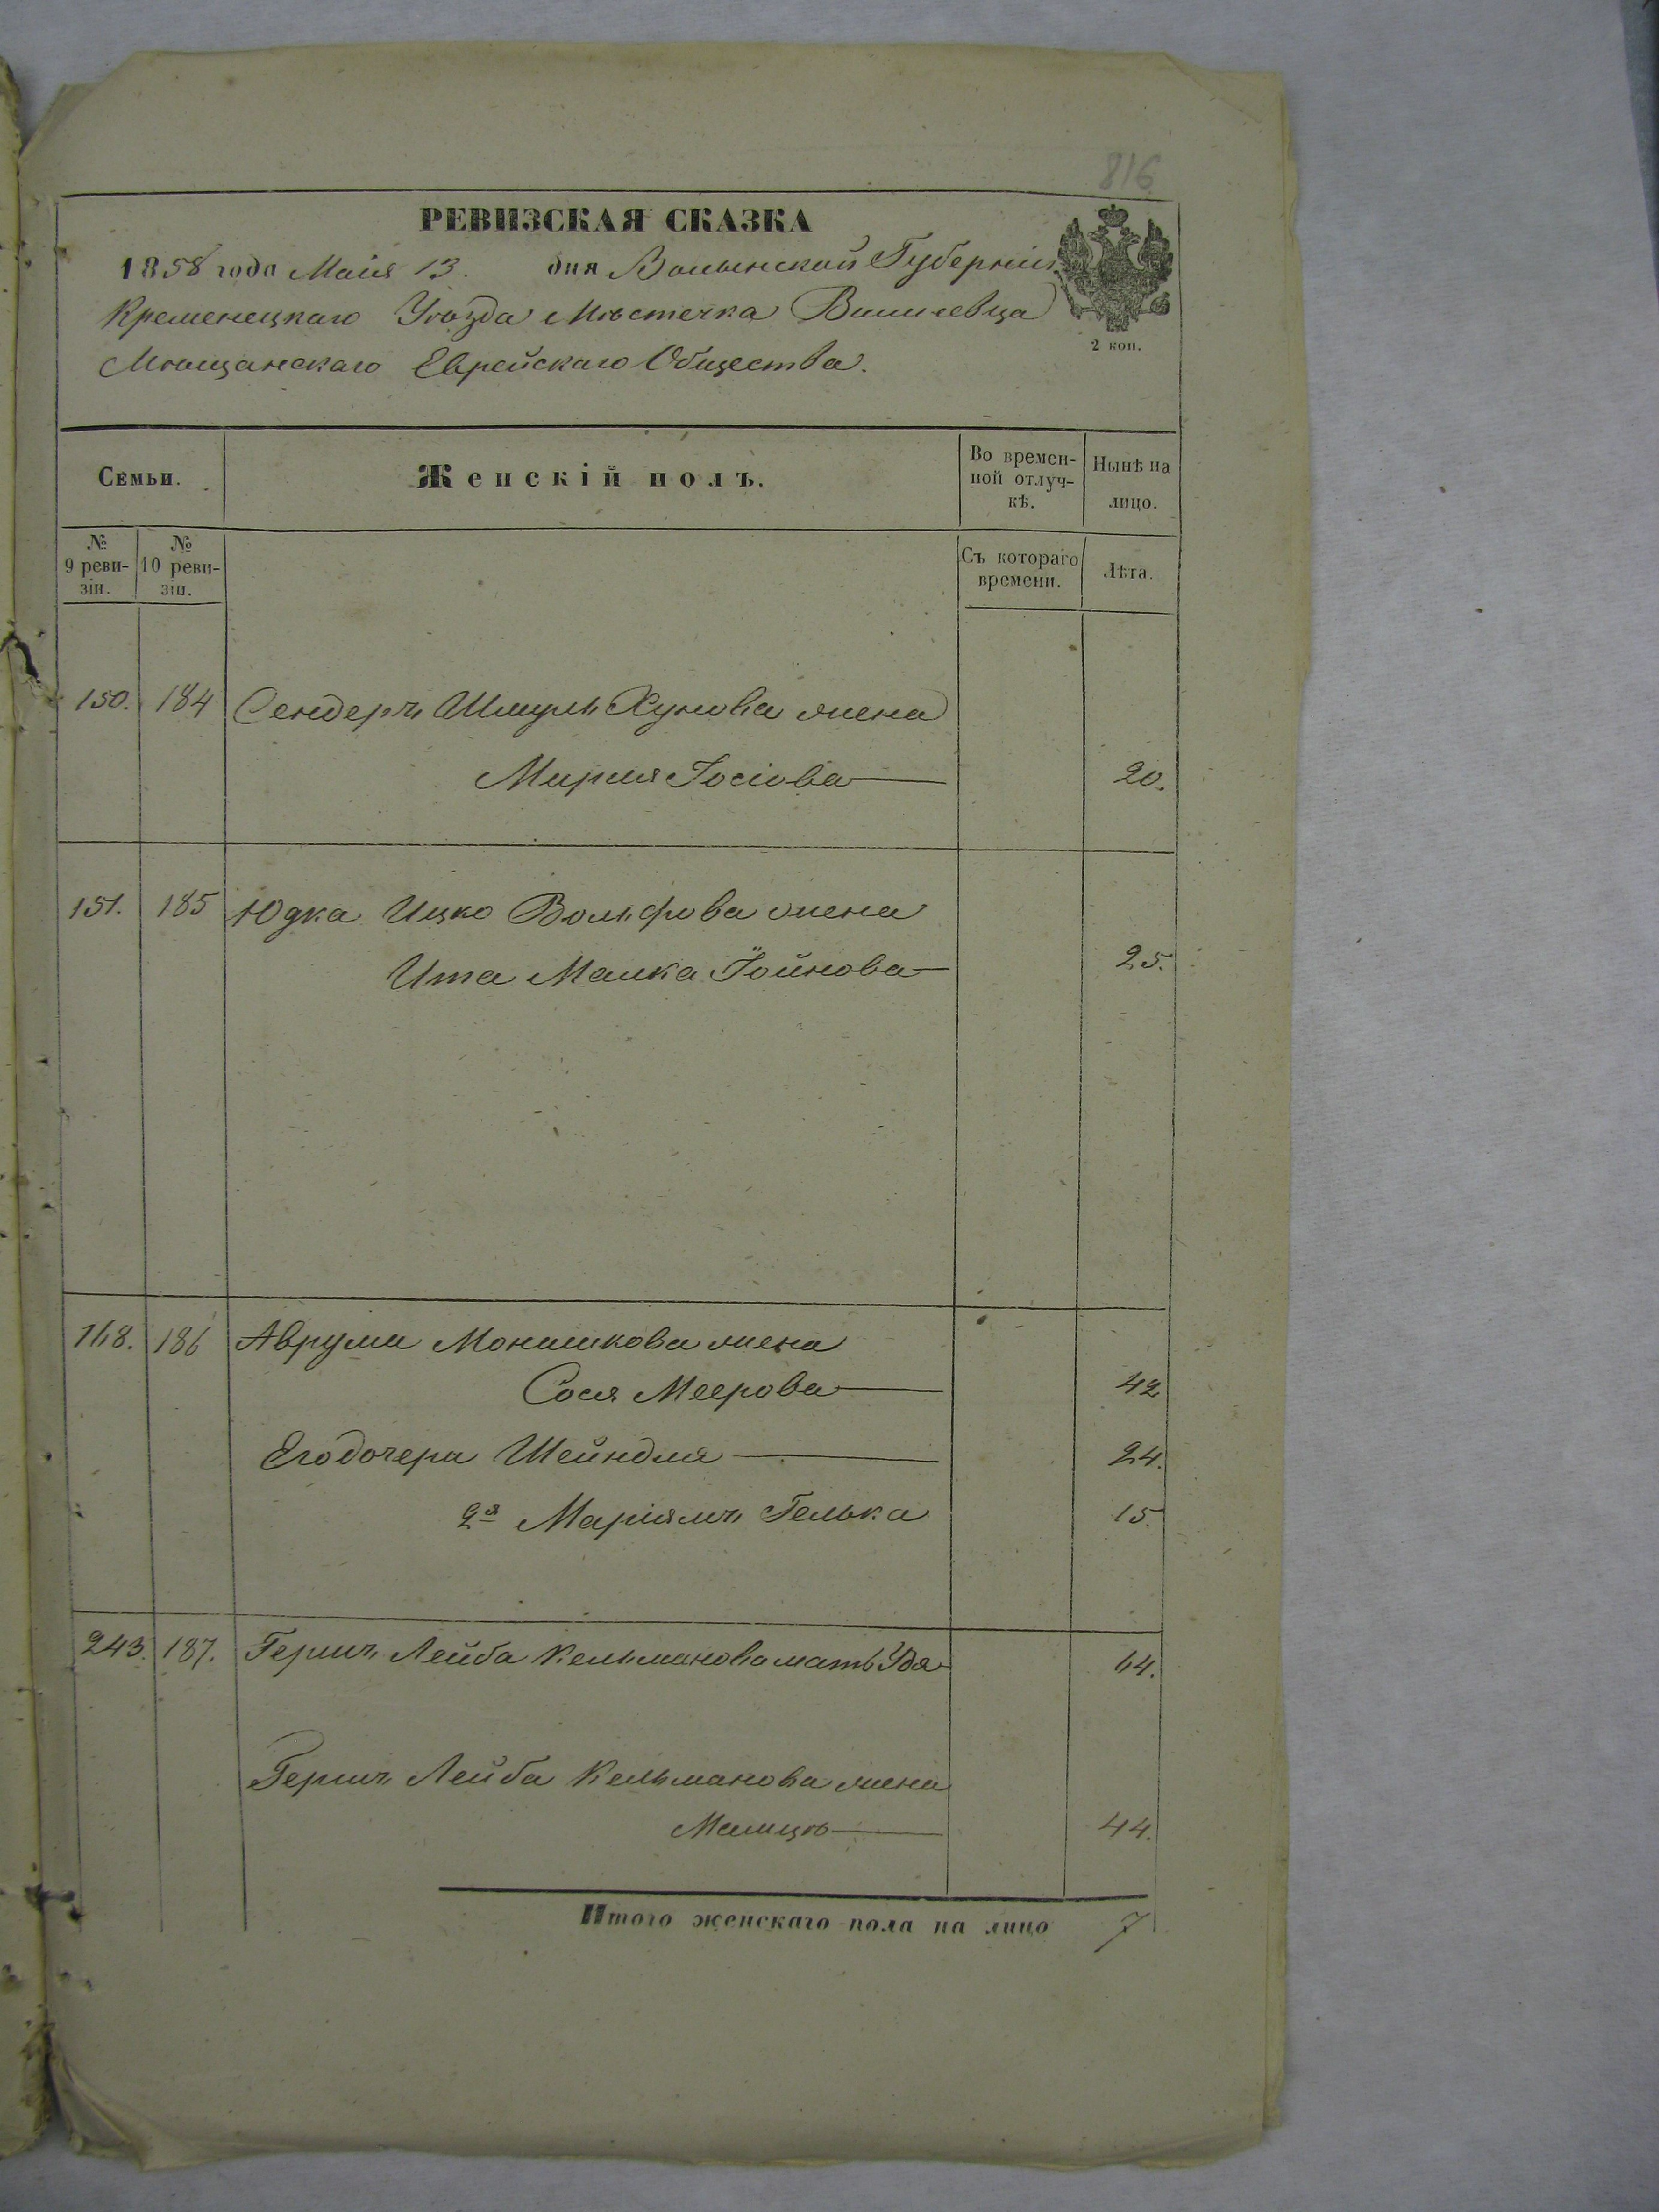 816
РЕВИЗСКАЯ СКАЗКА
1858 года Маія 13. дня Волынской Губерніи
Кременецкаго Уѣзда Мѣстечка Вишневца
Мѣщанскаго Еврейскаго Общества.
2 коп.
Семьи.
Женскій полъ.
Во времен-
ной отлуч-
кѣ.
Нынѣ на
лицо.
№
9 реви-
зіи.
№
10 реви-
зіи.
Съ котораго
времени.
Лѣта.
150. 184 Сендеръ Шмуль Хунова жена
Мирля Іосіова 20.
151. 185 Юдка Ицко Вольфова жена
Ита Малка Іойнова 25.
168. 186 Аврума Моншкова жена
Сося Меерова 42
Его дочери Шейндля 24.
2я Маріямъ Гелька 15
243. 187. Гершъ Лейба Кельманова мать Удя 64.
Гершъ Лейба Кельманова жена
44.
Итого женскаго пола на лицо 7